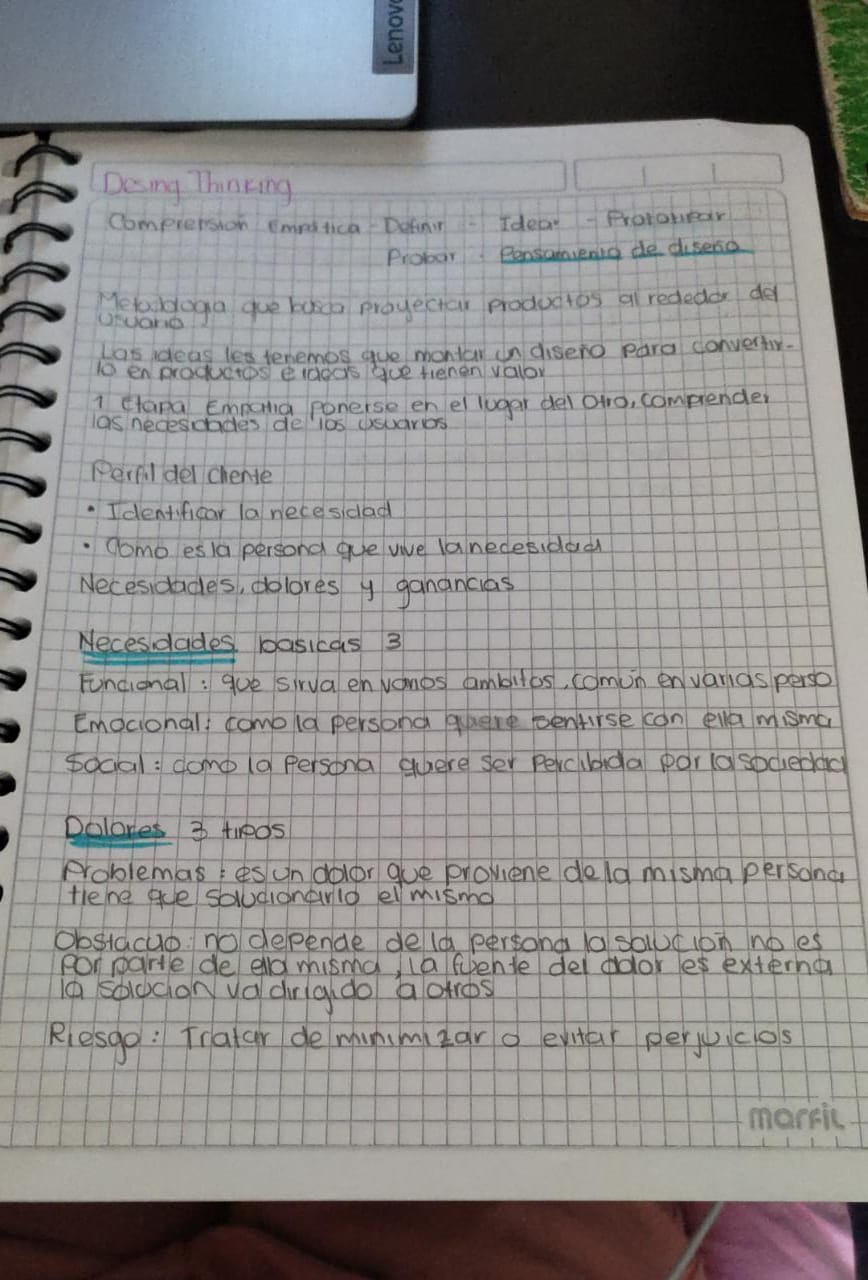 Lenovo
Desing Thinking
Comprension Empatica - Definir - Idear - Prototipar
Probar . Pensamiento de diseño
Metodologia que busca proyectar productos al rededor del
usuario
Las ideas les tenemos que montar un diseño para convertir-
lo en productos e ideas que tienen valor
1 Etapa Empatia ponerse en el lugar del otro, comprender
las necesidades de los usuarios
Perfil del cliente
• Identificar la necesidad
• Como es la persona que vive la necesidad
Necesidades, dolores y ganancias
Necesidades basicas 3
Funcional : que sirva en varios ambitos, común en varias perso
Emocional: como la persona quere sentirse con ella misma
Social : como la persona quere ser percibida por la sociedad
Dolores 3 tipos
Problemas : es un dolor que proviene de la misma persona,
tiene que solucionarlo el mismo
Obstaculo: no depende de la persona la solución no es
por parte de ella misma, la fuente del dolor es externa
la solucion va dirigido a otros
Riesgo : Tratar de minimizar o evitar perjuicios
marfil